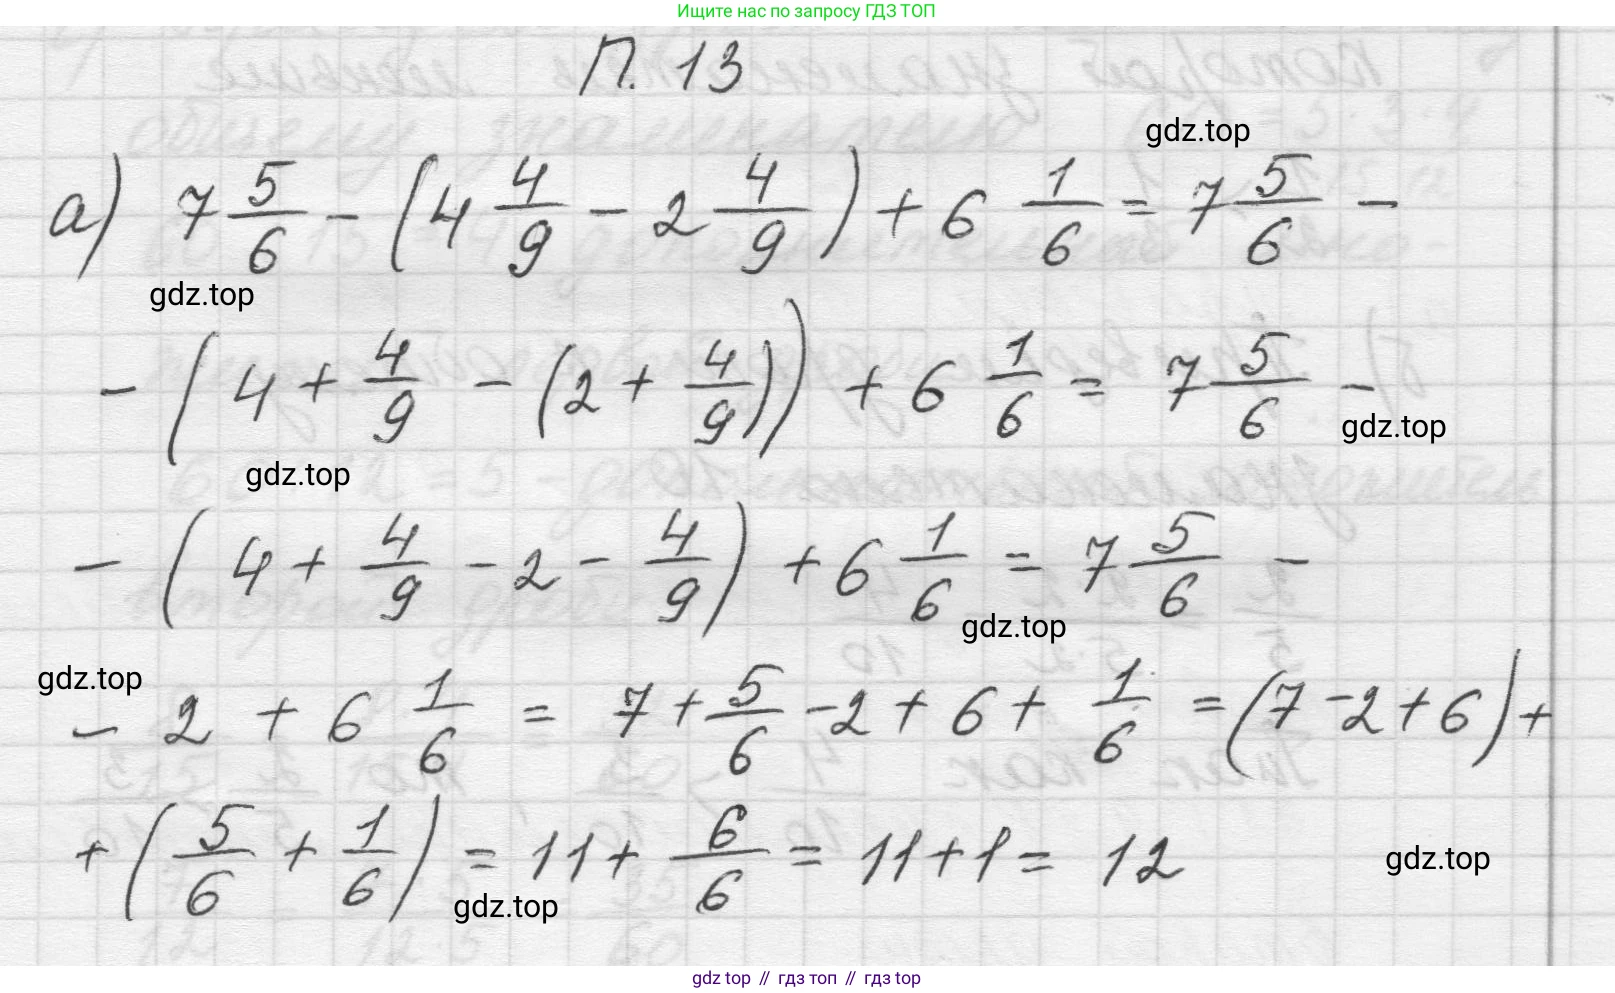 Ищите нас по запросу ГДЗ ТОП
П. 13
gdz.top
а) 7 5/6 - (4 4/9 - 2 4/9) + 6 1/6 = 7 5/6 -
gdz.top
- (4 + 4/9 - (2 + 4/9)) + 6 1/6 = 7 5/6 -
gdz.top
gdz.top
- (4 + 4/9 - 2 - 4/9) + 6 1/6 = 7 5/6 -
gdz.top
gdz.top
- 2 + 6 1/6 = 7 + 5/6 - 2 + 6 + 1/6 = (7 - 2 + 6) +
+ (5/6 + 1/6) = 11 + 6/6 = 11 + 1 = 12
gdz.top
gdz.top
gdz top // гдз топ // гдз top